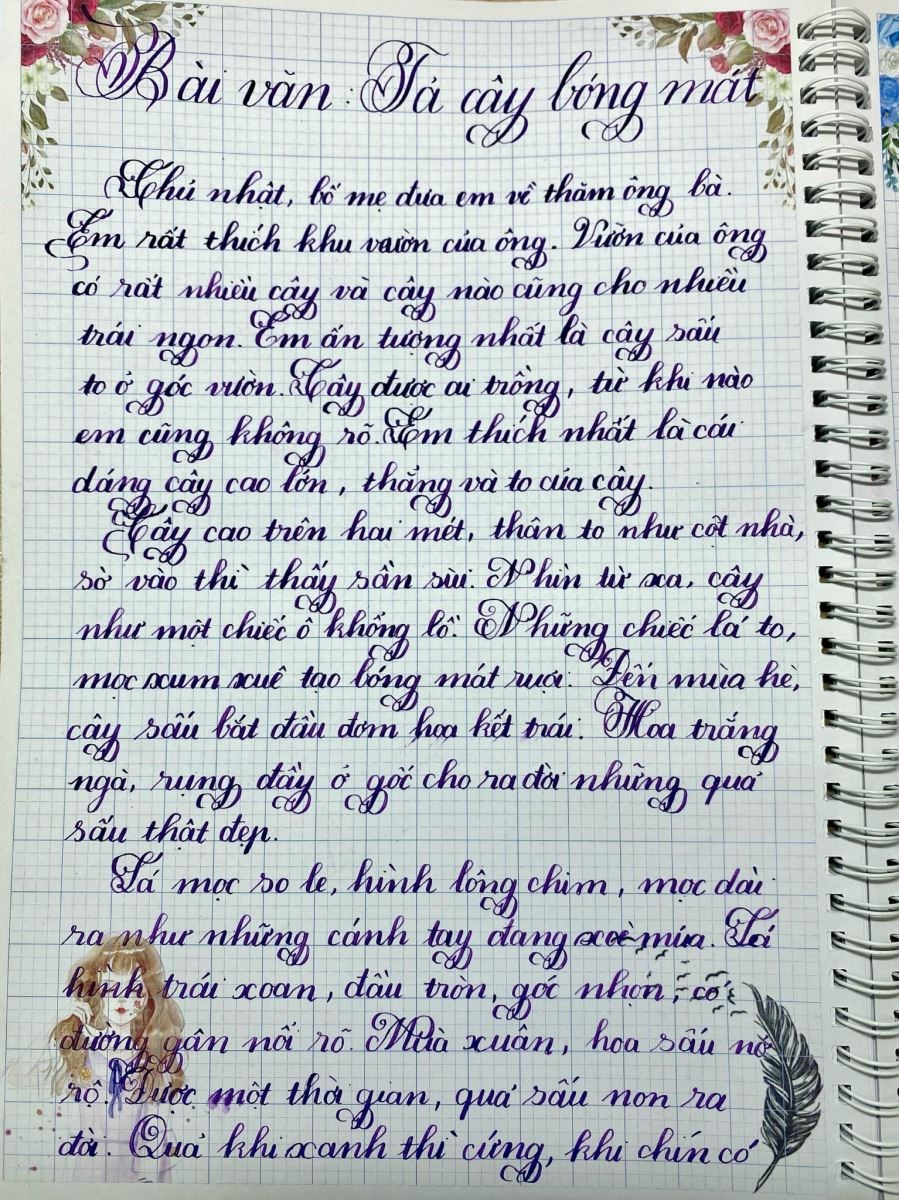 Bài văn: Tả cây bóng mát
Chủ nhật, bố mẹ đưa em về thăm ông bà.
Em rất thích khu vườn của ông. Vườn của ông
có rất nhiều cây và cây nào cũng cho nhiều
trái ngon. Em ấn tượng nhất là cây sấu
to ở góc vườn. Cây được ai trồng, từ khi nào
em cũng không rõ. Em thích nhất là cái
dáng cây cao lớn, thẳng và to của cây.
Cây cao trên hai mét, thân to như cột nhà,
sờ vào thì thấy sần sùi. Nhìn từ xa, cây
như một chiếc ô khổng lồ. Những chiếc lá to,
mọc xum xuê tạo bóng mát rượi. Đến mùa hè,
cây sấu bắt đầu đơm hoa kết trái. Hoa trắng
ngà, rụng đầy ở gốc cho ra đời những quả
sấu thật đẹp.
Lá mọc so le, hình lông chim, mọc dài
ra như những cánh tay đang xoè múa. Lá
hình trái xoan, đầu tròn, gốc nhọn, có
đường gân nổi rõ. Mùa xuân, hoa sấu nở
rộ. Được một thời gian, quả sấu non ra
đời. Quả khi xanh thì cứng, khi chín có